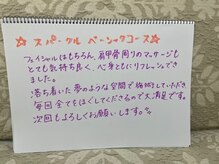 ☆ スパークル ベーシックコース☆
フェイシャルはもちろん、肩甲骨周りのマッサージも
とても気持ち良く、心身ともにリフレッシュでき
ました。
落ち着いた夢のような空間で施術していただき、
毎回全てをほぐしてくださるので大満足です。
次回もよろしくお願いします。